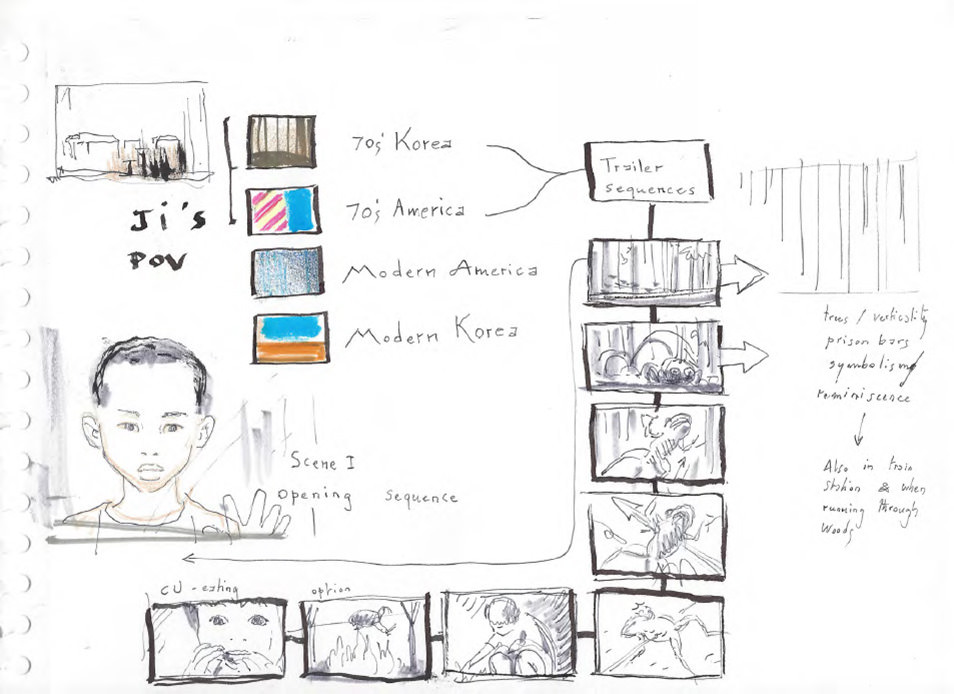 Ji's
POV
70's Korea
70's America
Modern America
Modern Korea
Trailer
sequences
trees / verticality
prison bars
symbolism
reminiscence
Also in train
station & when
running through
woods
Scene I
opening sequence
CU - eating
option